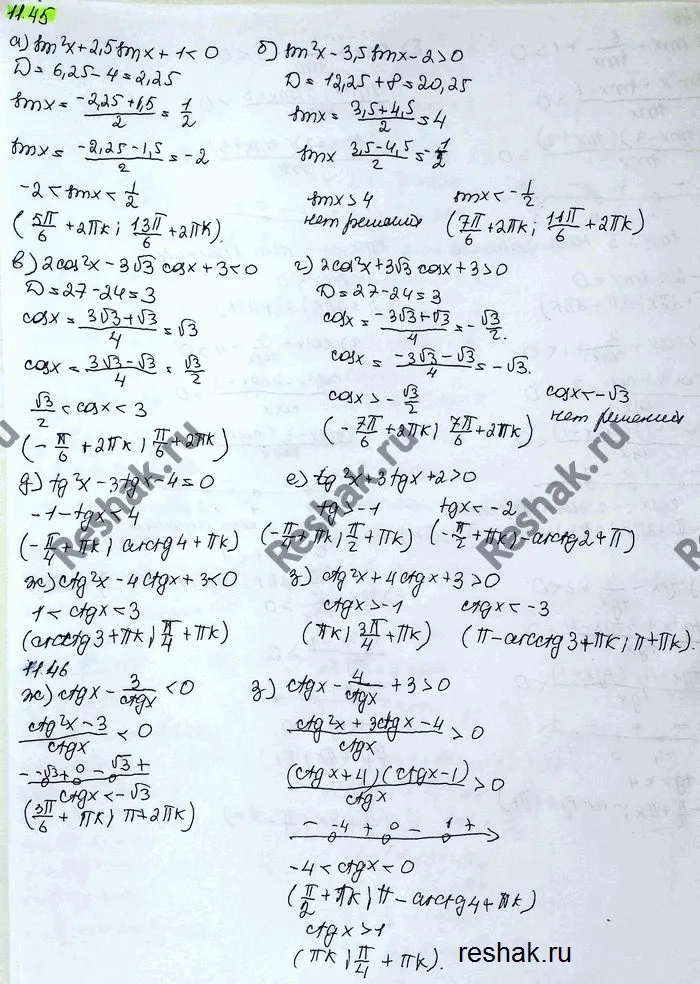 11.45
а) sin²x + 2,5 sinx + 1 < 0
D = 6,25 - 4 = 2,25
sinx = (-2,25 + 1,5)/2 = 1/2
sinx = (-2,25 - 1,5)/2 = -2
-2 < sinx < 1/2
(5π/6 + 2πk; 13π/6 + 2πk).
б) sin²x - 3,5 sinx - 2 > 0
D = 12,25 + 8 = 20,25
sinx = (3,5 + 4,5)/2 = 4
sinx (3,5 - 4,5)/2 = -1/2
sinx > 4 sinx < -1/2
нет решения (7π/6 + 2πk; 11π/6 + 2πk)
в) 2cos²x - 3√3 cosx + 3 < 0
D = 27 - 24 = 3
cosx = (3√3 + √3)/4 = √3
cosx = (3√3 - √3)/4 = √3/2
√3/2 < cosx < 3
(-π/6 + 2πk; π/6 + 2πk)
г) 2cos²x + 3√3 cosx + 3 > 0
D = 27 - 24 = 3
cosx = (-3√3 + √3)/4 = -√3/2.
cosx = (-3√3 - √3)/4 = -√3.
cosx > -√3/2 cosx < -√3
(-7π/6 + 2πk; 7π/6 + 2πk) нет решений
д) tg²x - 3tgx - 4 = 0
-1 - tgx < 4
(-π/4 + πk; arctg4 + πk)
е) tg²x + 3tgx + 2 > 0
tg > -1 tgx < -2
(-π/4 + πk; π/2 + πk) (-π/2 + πk; -arctg2 + π)
ж) ctg²x - 4ctgx + 3 < 0
1 < ctgx < 3
(arcctg3 + πk; π/4 + πk)
з) ctg²x + 4ctgx + 3 > 0
ctgx > -1 ctgx < -3
(πk; 3π/4 + πk) (π - arcctg3 + πk; π + πk).
11.46
ж) ctgx - 3/ctgx < 0
(ctg²x - 3)/ctgx < 0
- -√3 + 0 - √3 +
ctgx < -√3
(3π/6 + πk; π + 2πk)
з) ctgx - 4/ctgx + 3 > 0
(ctg²x + 3ctgx - 4)/ctgx > 0
(ctgx + 4)(ctgx - 1)/ctgx > 0
- -4 + 0 - 1 +
-4 < ctgx < 0
(π/2 + πk; π - arcctg4 + πk)
ctgx > 1
(πk; π/4 + πk).
Reshak.ru
Reshak.ru
Reshak.ru
reshak.ru